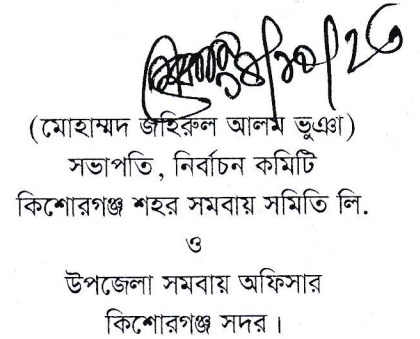 (মোহাম্মদ জহিরুল আলম ভুঞা)
সভাপতি, নির্বাচন কমিটি
কিশোরগঞ্জ শহর সমবায় সমিতি লি.
ও
উপজেলা সমবায় অফিসার
কিশোরগঞ্জ সদর।